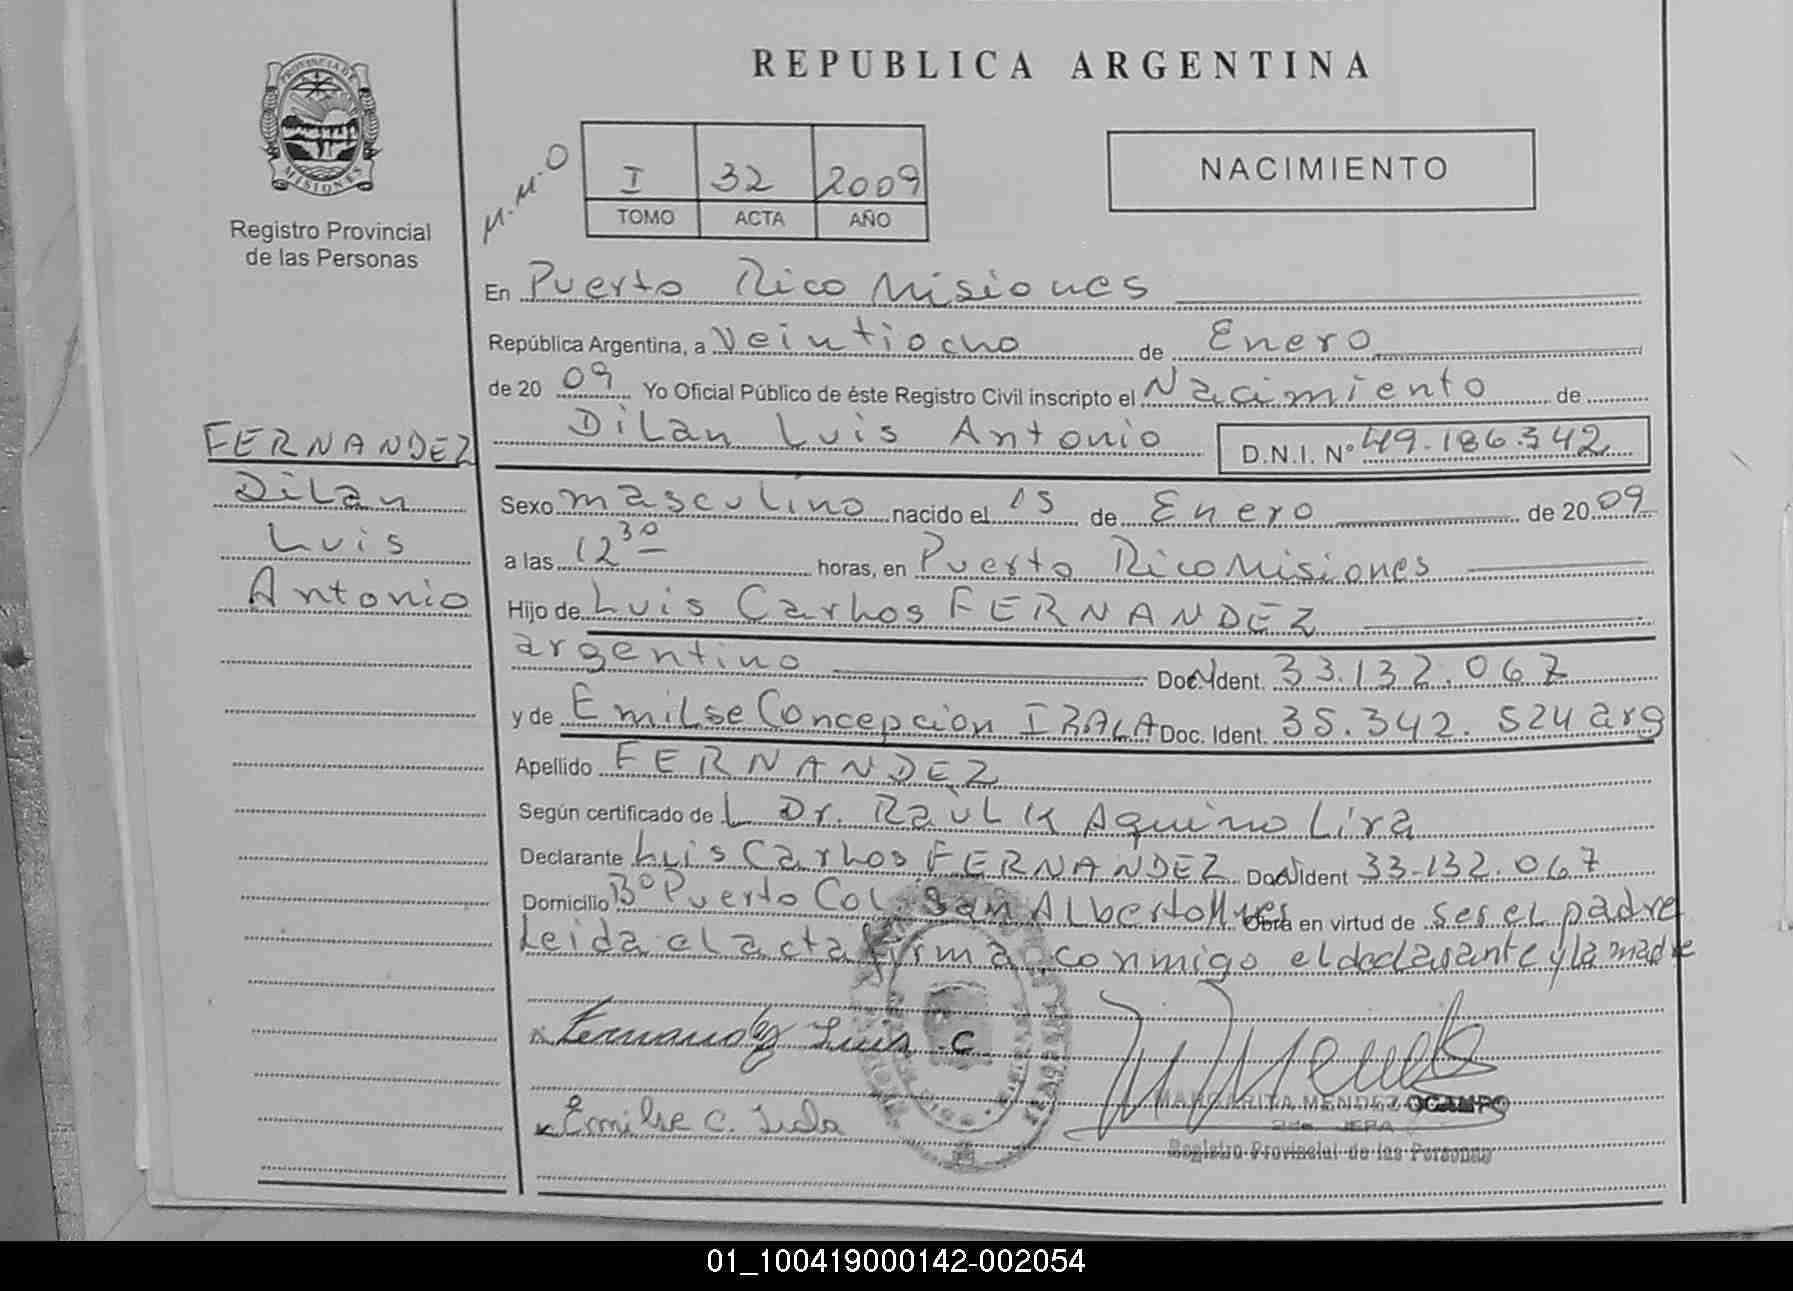 REPUBLICA ARGENTINA
PROVINCIA DE
MISIONES
Registro Provincial
de las Personas
M.M.O
I 32 2009
TOMO ACTA AÑO
NACIMIENTO
En Puerto Rico Misiones
República Argentina, a Veintiocho de Enero
de 20 09 Yo Oficial Público de éste Registro Civil inscripto el Nacimiento de
Dilan Luis Antonio D.N.I. Nº 49.186.342
FERNANDEZ
Dilan
Luis
Antonio
Sexo masculino nacido el 15 de Enero de 20 09
a las 12 30 horas, en Puerto Rico Misiones
Hijo de Luis Carlos FERNANDEZ
argentino Doc. Ident. 33.132.067
y de Emilse Concepcion IRALA Doc. Ident. 35.342.524 arg
Apellido FERNANDEZ
Según certificado de L Dr. Raùl K Aquino Lira
Declarante Luis Carlos FERNANDEZ Doc. Ident 33.132.067
Domicilio Bº Puerto Col. San Alberto Mnes Obra en virtud de ser el padre
Leida el acta firma conmigo el declarante y la madre
Fernandez Luis C
Emilse C. Irala
MARGARITA MENDEZ OCAMPO
JEFA
Registro Provincial de las Personas
01_100419000142-002054